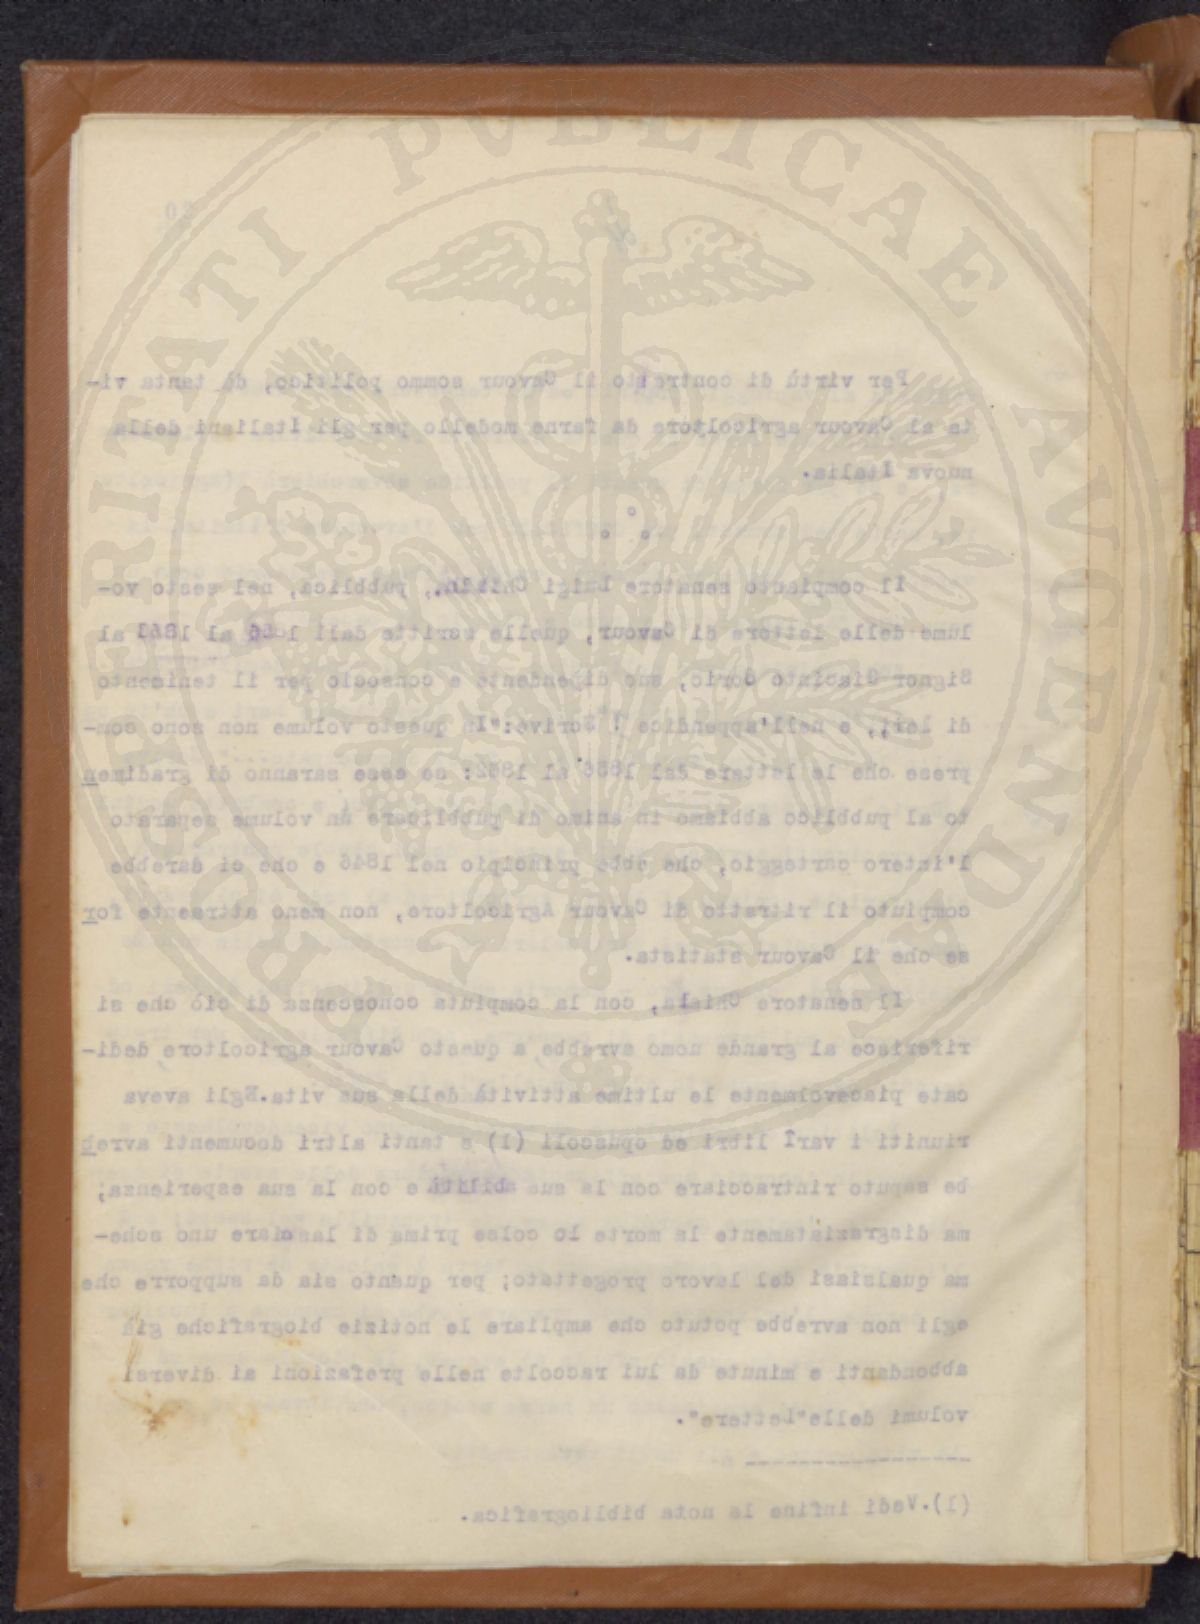 Per virtù di contrasto il Cavour sommo politico, dà tanta vi-
ta al Cavour agricoltore da farne modello per gli Italiani della
nuova Italia.
Il compianto senatore Luigi Chiala, pubblica, nel sesto vo-
lume delle lettere di Cavour, quelle scritte dall 1856 al 1861 al
Signor Giacinto Corio, suo dipendente e consocio per il tenimento
di Leri, e nell'appendice scrive: "In questo volume non sono com-
prese che le lettere dal 1856 al 1862: se esse saranno di gradimen
to al pubblico abbiamo in animo di pubblicare in volume separato
l'intero carteggio, che ebbe principio nel 1846 e che ci darebbe
compiuto il ritratto di Cavour Agricoltore, non meno attraente for
se che il Cavour statista.
Il senatore Chiala, con la compiuta conoscenza di ciò che si
riferisce al grande uomo avrebbe a questo Cavour agricoltore dedi-
cate piacevolmente le ultime attività della sua vita. Egli aveva
riuniti i varî libri ed opuscoli (1) e tanti altri documenti avreb
be saputo rintracciare con la sua abilità e con la sua esperienza;
ma disgraziatamente la morte lo colse prima di lasciare uno sche-
ma qualsiasi del lavoro progettato; per quanto sia da supporre che
egli non avrebbe potuto che ampliare le notizie biografiche già
abbondanti e minute da lui raccolte nelle prefazioni ai diversi
volumi delle "Lettere".
(1). Vedi infine la nota bibliografica.
PROSPERITATI PVBLICAE AVGENDAE